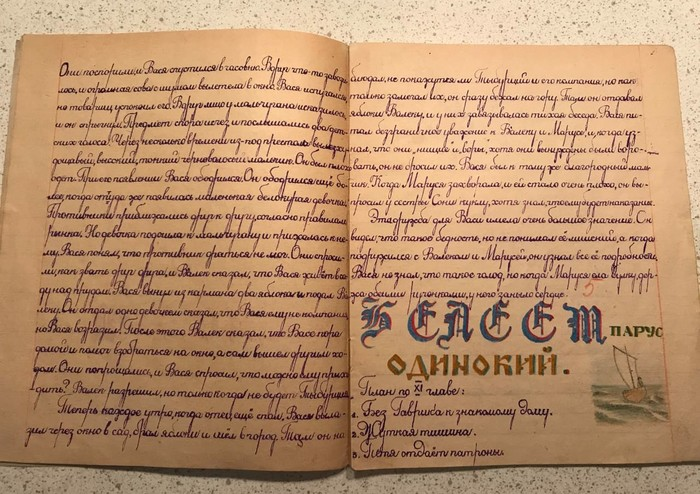 Они поспорили, и Вася спустился в часовню. Вдруг что-то завози-
лось, и огромная сова с шумом вылетела в окно. Вася испугался,
но товарищ успокоил его. Вдруг лицо у мальчугана исказилось,
и он спрятался. Предмет скоро исчез и послышались два дет-
ских голоса. Через несколько времени из-под престола вышел
высокий, тонкий черноволосый мальчик. Он был
одет. При его появлении Вася ободрился. Он ободрился ещё бо-
лее, когда оттуда же появилась маленькая белокурая девочка.
Противники приближались друг к другу, согласно правилам
рынка. Но девочка подошла к мальчугану и прижалась к не-
му. Вася понял, что противник драться не мог. Они спроси-
ли, как звать друг друга, и Валек сказал, что Вася живёт в са-
ду над прудом. Вася вынул из кармана два яблока и подал Ва-
леку. Он отдал одно девочке и сказал, что Вася ему не компания,
но Вася возразил. После этого Валек сказал, что Васе пора
домой и помог взобраться на окно, а сам вышел другим хо-
дом. Они попрощались, и Вася спросил, что можно ему прихо-
дить? Валек разрешил, но только когда не будет Тыбурция.
Теперь каждое утро, когда отец ещё спал, Вася выле-
зал через окно в сад, брал яблоки и шёл в город. Там он на-
блюдал, не покажутся ли Тыбурций и его компания, но как
только замечал их, он сразу бежал на гору. Там он отдавал
яблоки Валеку, и у них завязывалась тихая беседа. Вася пи-
тал безграничное уважение к Валеку и Марусе, и, когда уз-
нал, что они, нищие и воры, хотя они вынуждены были воро-
вать, он не бросил их. Вася был к тому же благородный маль-
чик. Когда Маруся захворала и ей стало очень плохо, он вы-
просил у сестры Сони куклу, хотя знал, что ему будет наказание.
Эта дружба для Васи имела очень большое значение. Он
видел, что такое бедность, но не понимал её лишений, а когда
подружился с Валеком и Марусей, он узнал все её подробности.
Вася не знал, что такое голод, но когда Маруся ела булку, дер-
жа обеими ручонками, у него заныло сердце.
5
БЕЛЕЕТ ПАРУС
ОДИНОКИЙ.
План по XI главе:
1. Без Гаврика к знакомому дому.
2. Жуткая тишина.
3. Петя отдаёт патроны.